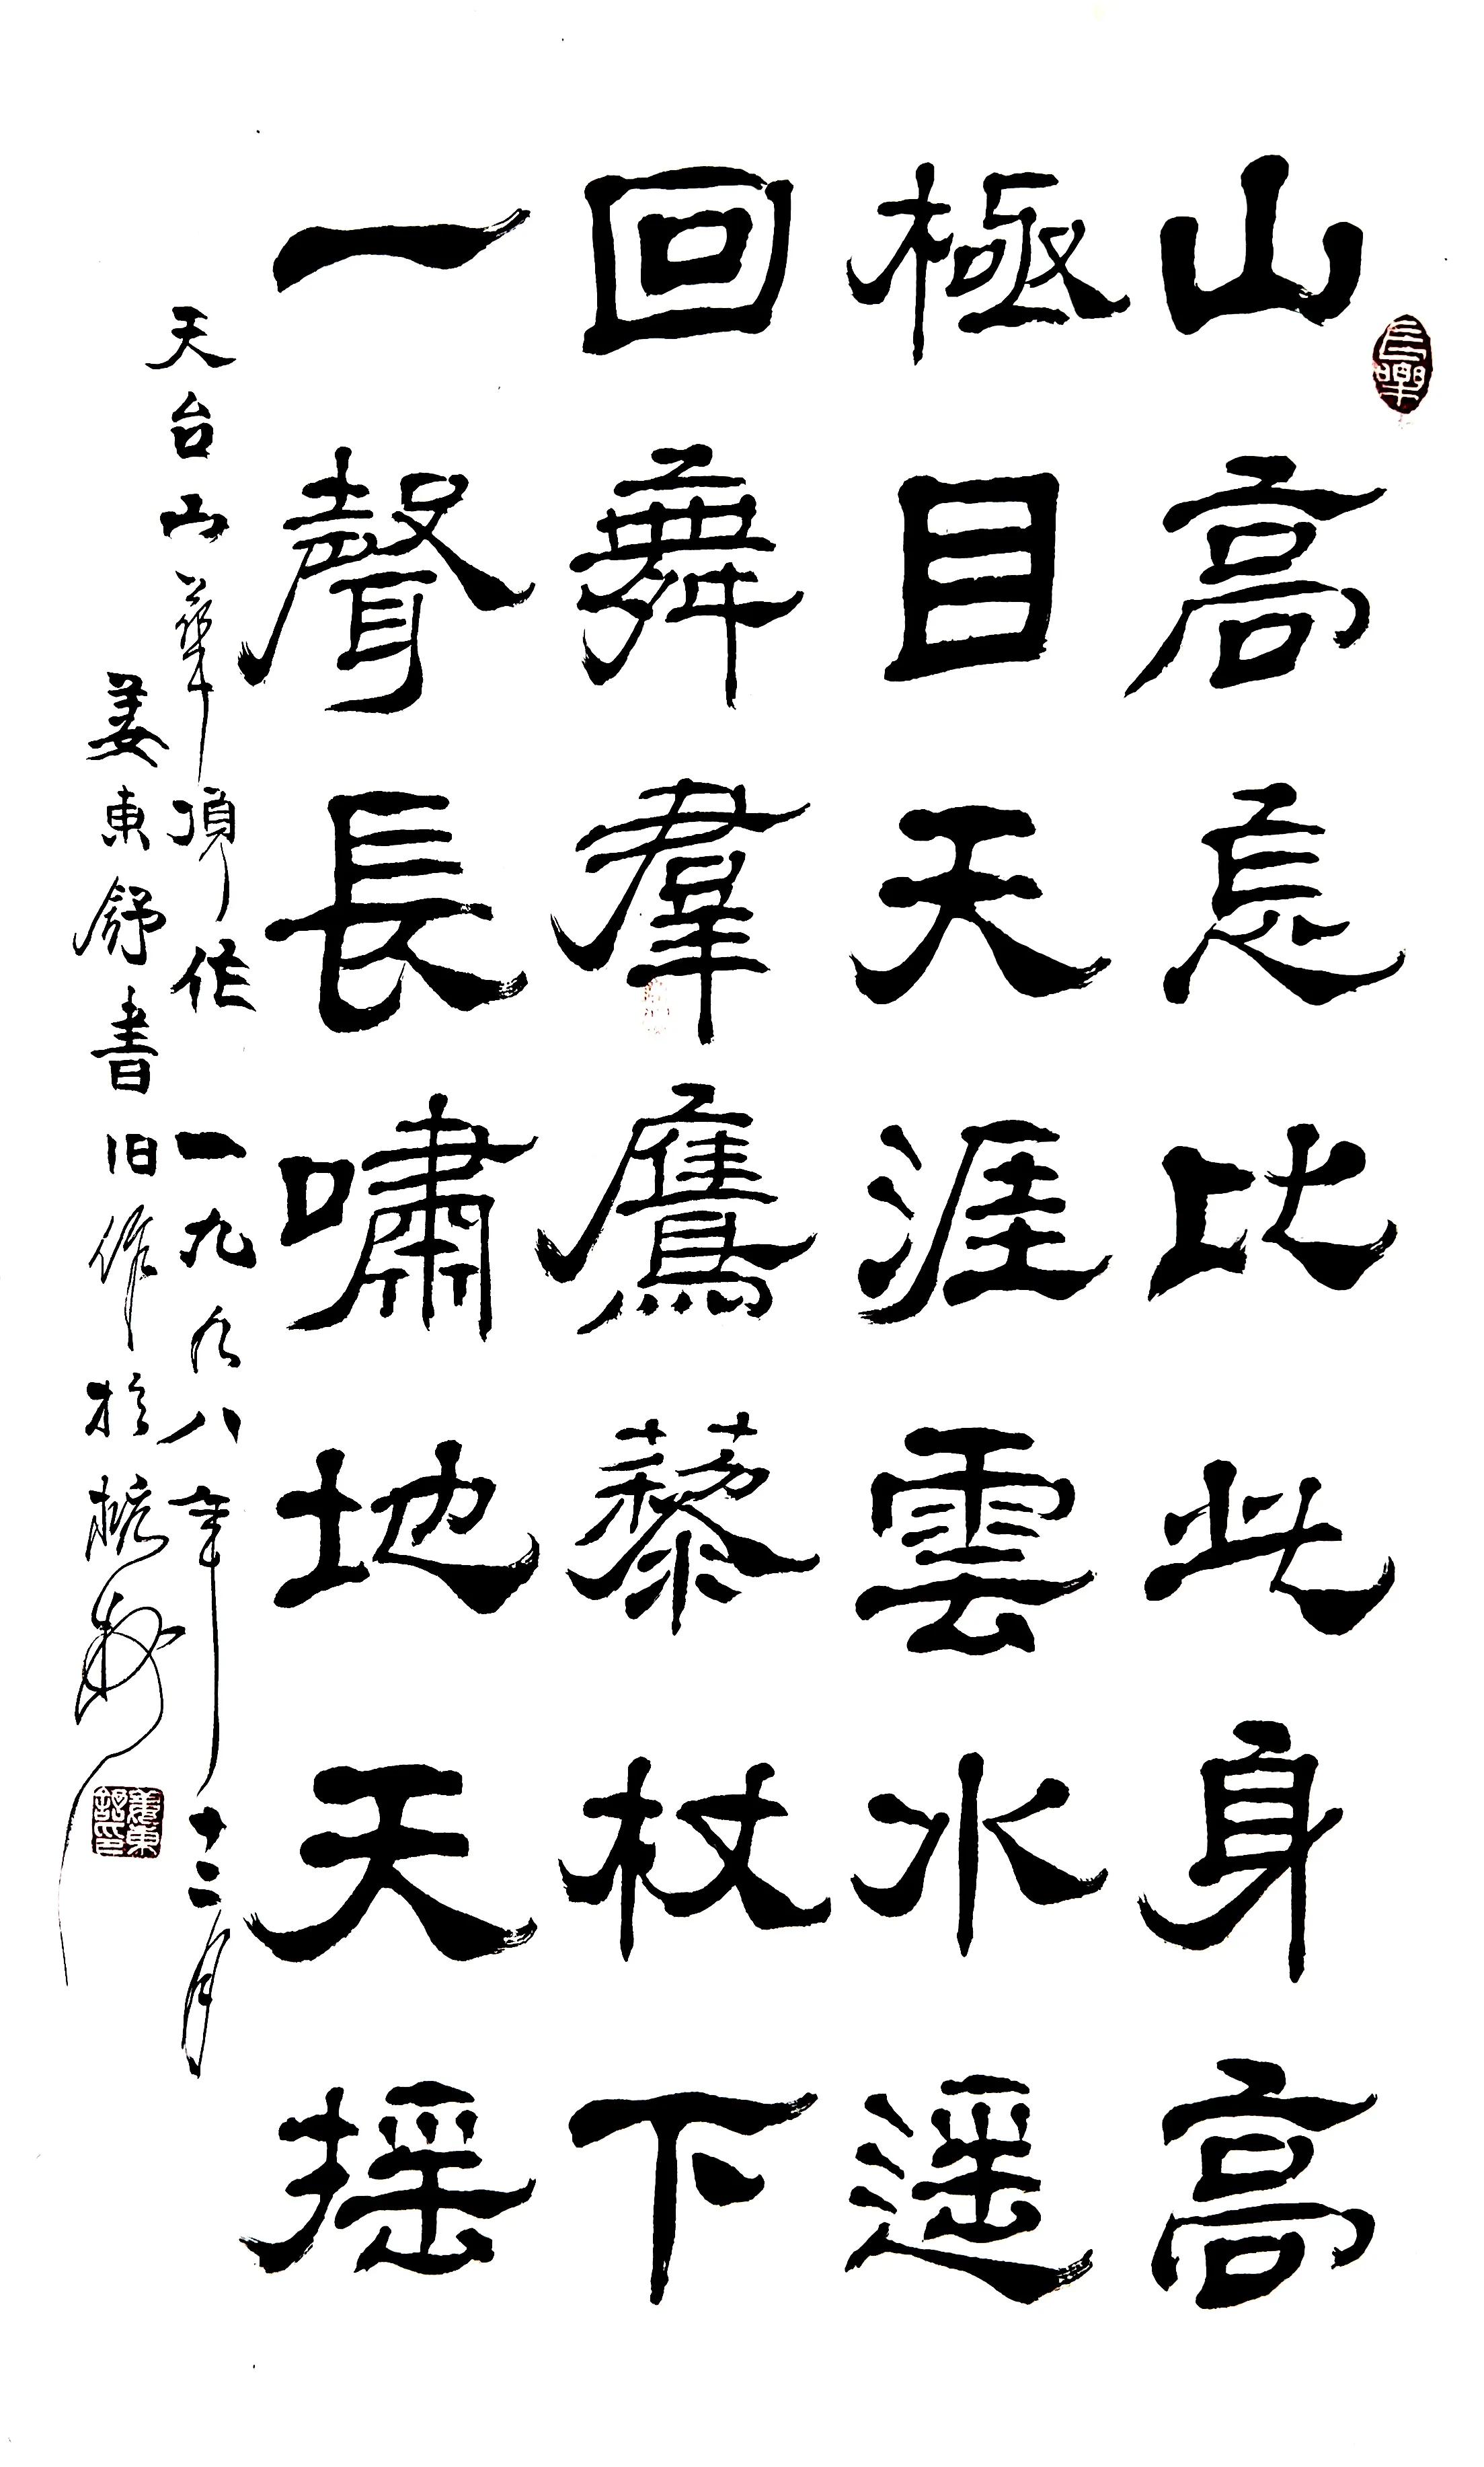 三樂
山高怎比此身高
極目天涯雲水遥
回舞羣鷹藜杖下
一聲長嘯地天摇
天台山華頂作 一九九八年十二月
姜東舒書旧作於杭州
姜東舒印